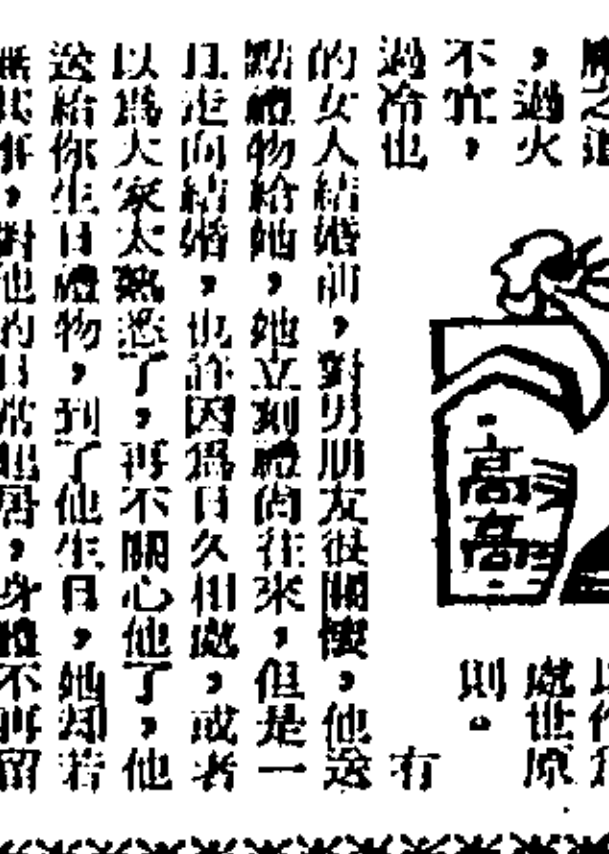 之道
，過火
不宜，
過冷也
高高
處世原
則。
有
的女人結婚前，對男朋友很關懷，他送
點禮物給她，她立刻禮尚往來，但是一
旦走向結婚，也許因爲日久相處，或者
以爲大家太熟悉了，再不關心他了，他
送給你生日禮物，到了他生日，她却若
無其事，對他的日常起居，身體不再留